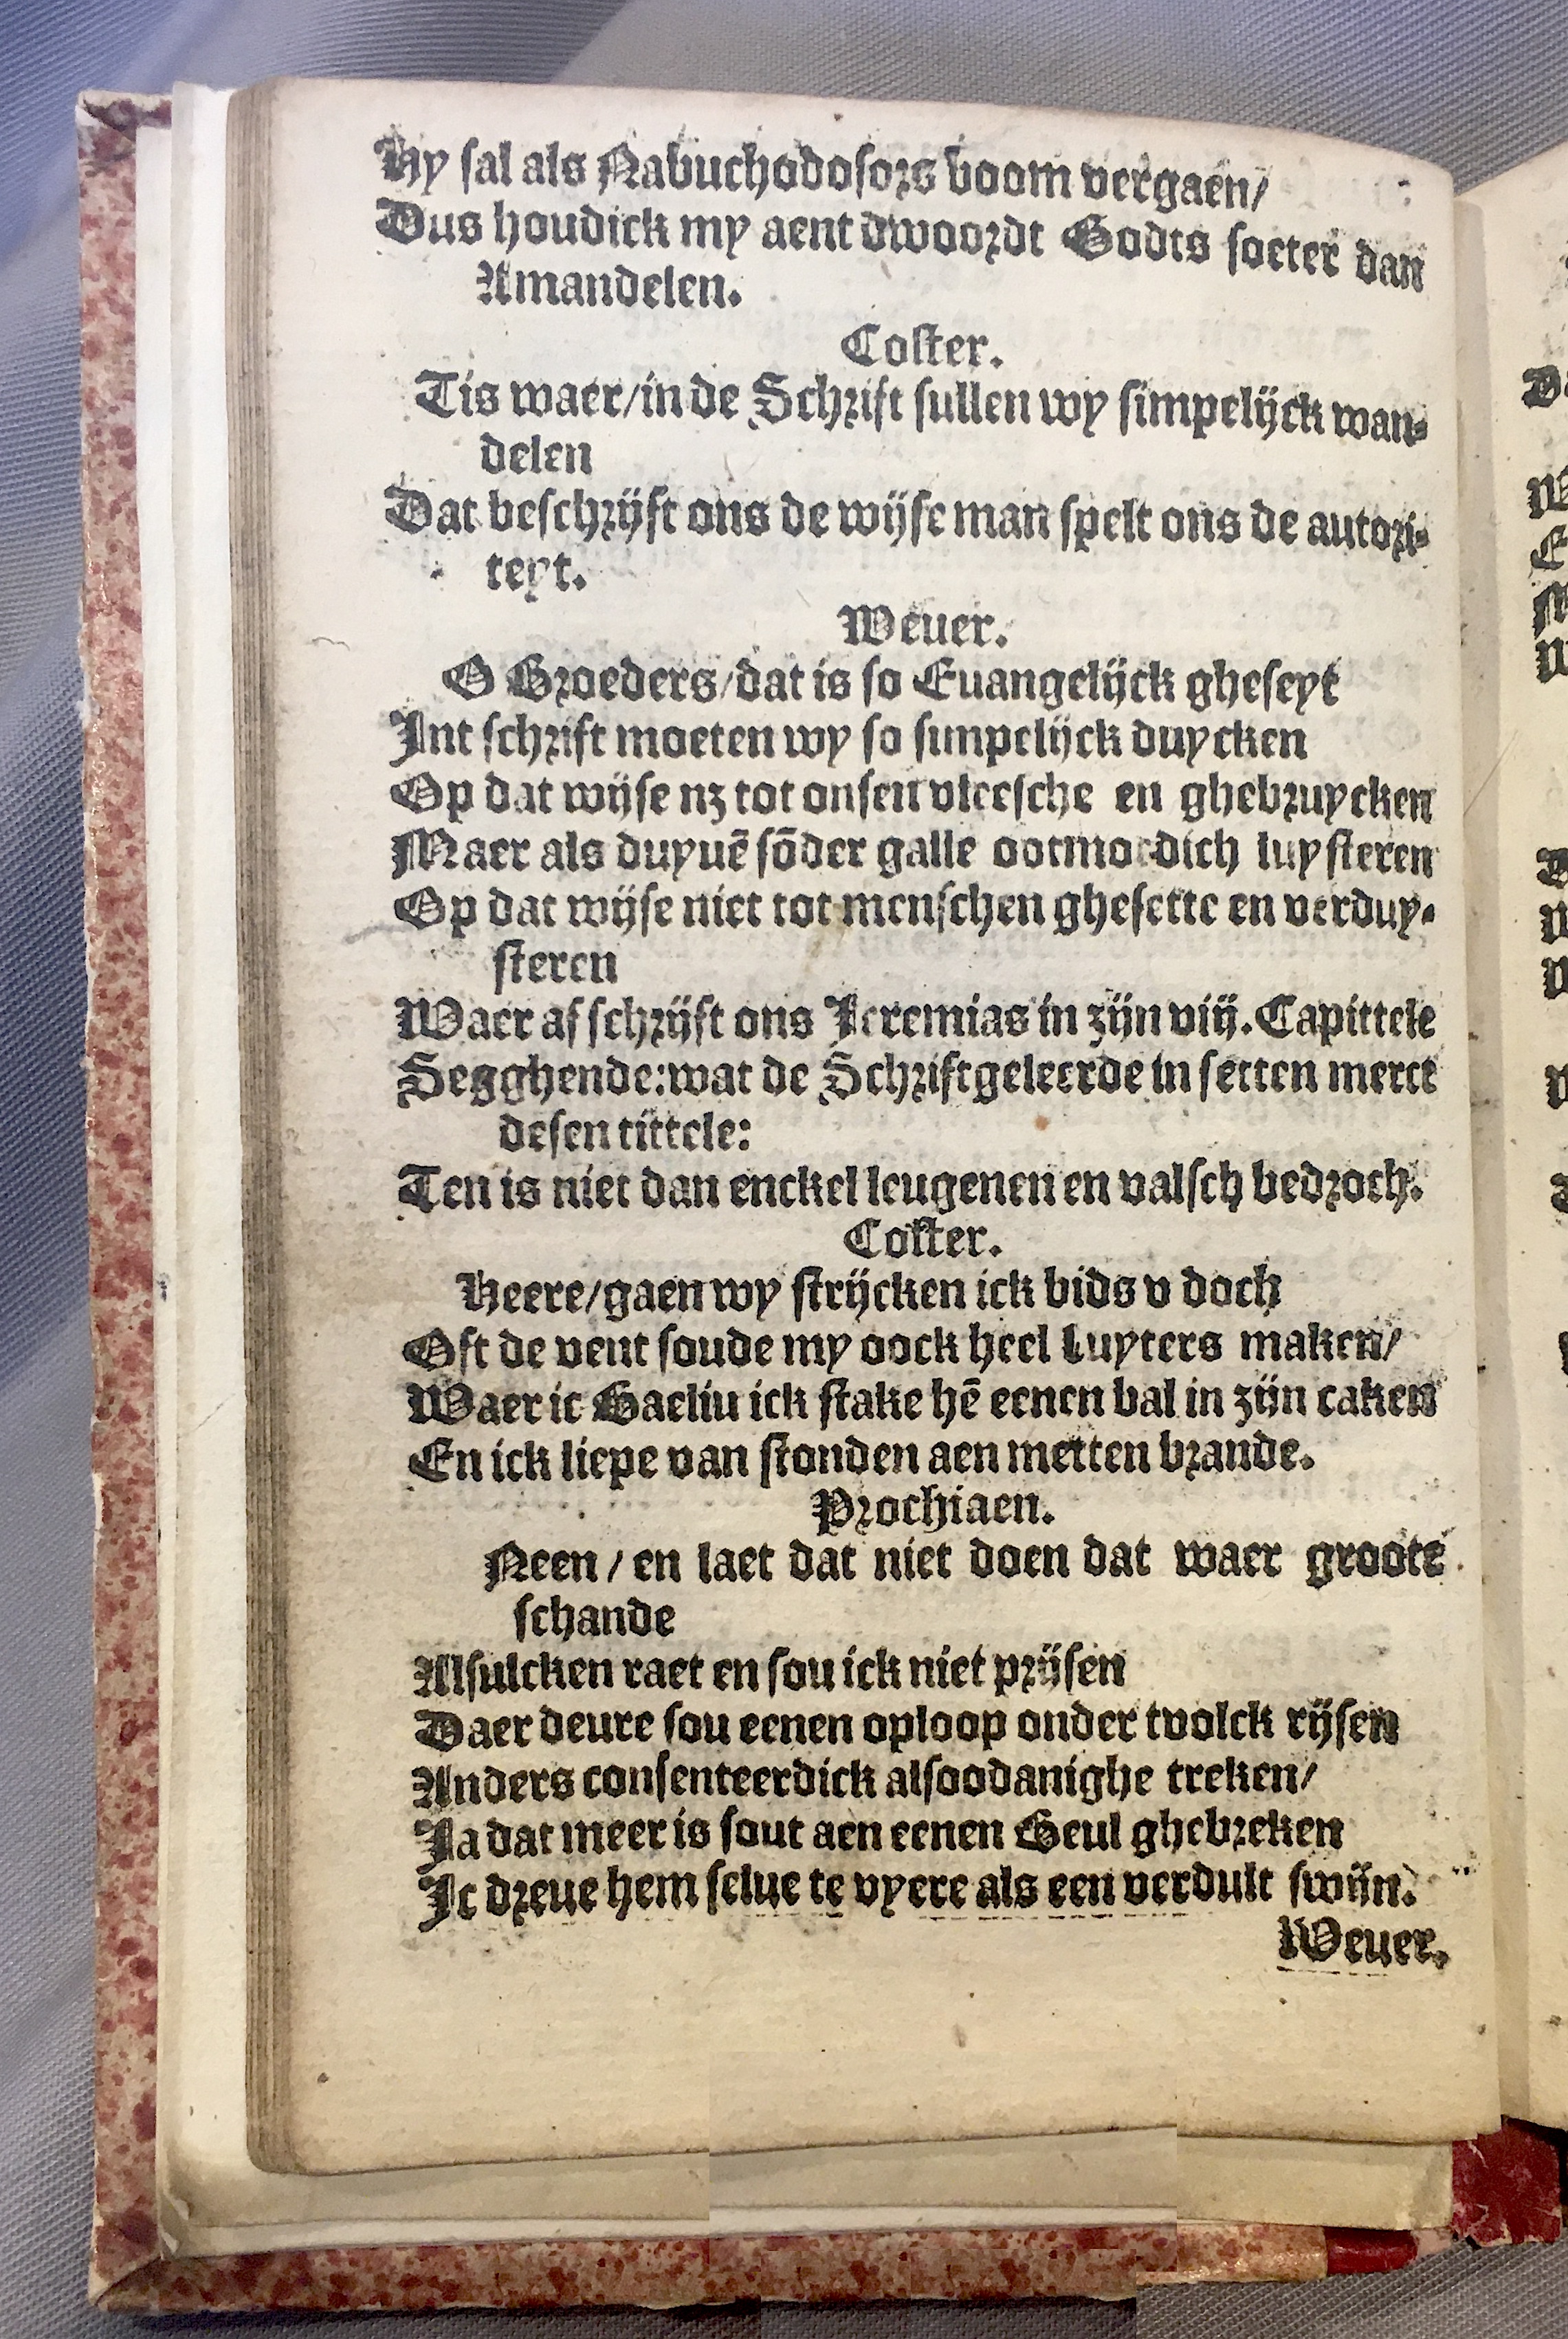 Hy sal als Nabuchodosors boom vergaen/
Dus houdick my aent dwoordt Godts soeter dan
Amandelen.
Coster.
Tis waer/in de Schrift sullen wy simpelijck wan-
delen
Dat beschrijft ons de wijse man spelt ons de autori-
teyt.
Weuer.
O Broeders/dat is so Euangelijck gheseyt
Int schrift moeten wy so simpelijck duycken
Op dat wijse nz tot onsen vleesche en ghebruycken
Maer als duyuẽ sõder galle ootmoedich luysteren
Op dat wijse niet tot menschen ghesette en verduy-
steren
Waer af schrijft ons Jeremias in zijn viij. Capittele
Segghende: wat de Schriftgeleerde in setten merct
desen tittele:
Ten is niet dan enckel leugenen en valsch bedroch.
Coster.
Heere/gaen wy strijcken ick bids v doch
Oft de vent soude my oock heel Luyters maken/
Waer ic Baeliu ick stake hẽ eenen bal in zijn caken
En ick liepe van stonden aen metten brande.
Prochiaen.
Neen/en laet dat niet doen dat waer groote
schande
Alsulcken raet en sou ick niet prijsen
Daer deure sou eenen oploop onder tvolck rijsen
Anders consenteerdick alsoodanighe treken/
Ja dat meer is sout aen eenen Beul ghebreken
Ic dreue hem selue te vyere als een verdult swijn.
Weuer.